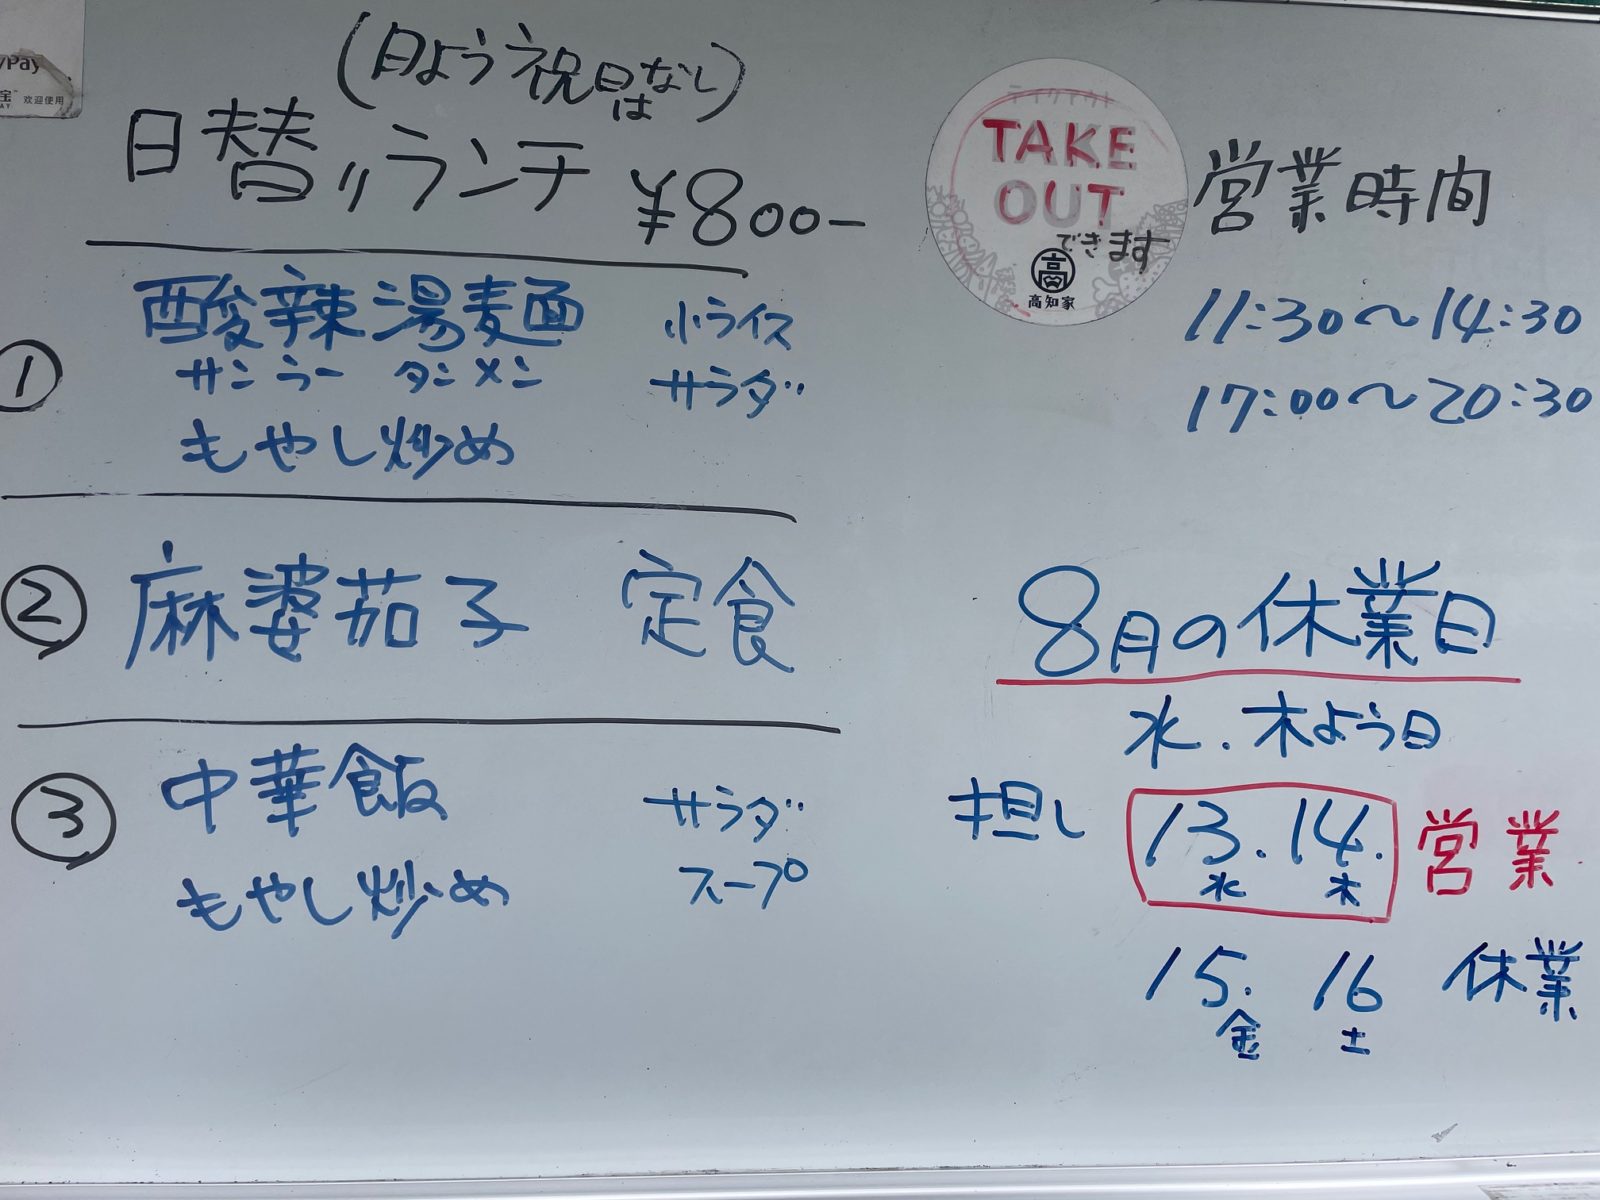 yPay
宝
AY 欢迎使用
(日よう祝日はなし)
日替りランチ ¥800-
① 酸辣湯麺 小ライス
サンラータンメン サラダ
もやし炒め
② 麻婆茄子 定食
③ 中華飯 サラダ
もやし炒め スープ
TAKE
OUT
できます
高
高知家
営業時間
11:30〜14:30
17:00〜20:30
8月の休業日
水.木よう日
担し 13.14. 営業
水 木
15. 16 休業
金 土